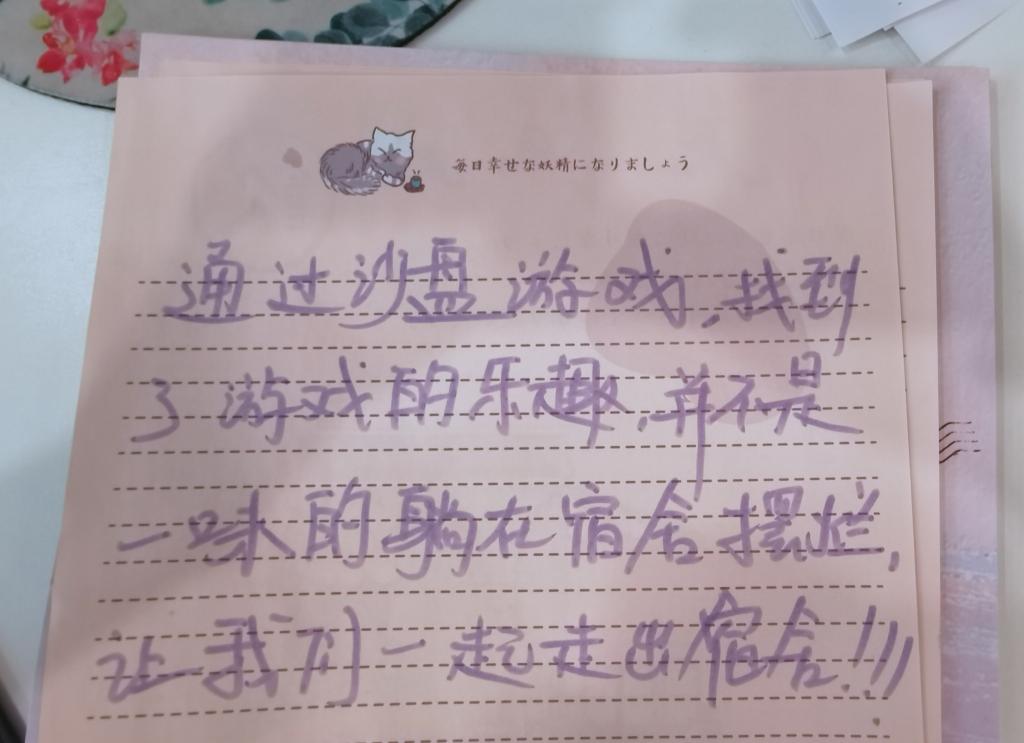 毎日幸せな妖精になりましょう
通过沙盘游戏,找到
了游戏的乐趣,并不是
一味的躺在宿舍摆烂,
让我们一起走出宿舍!!!